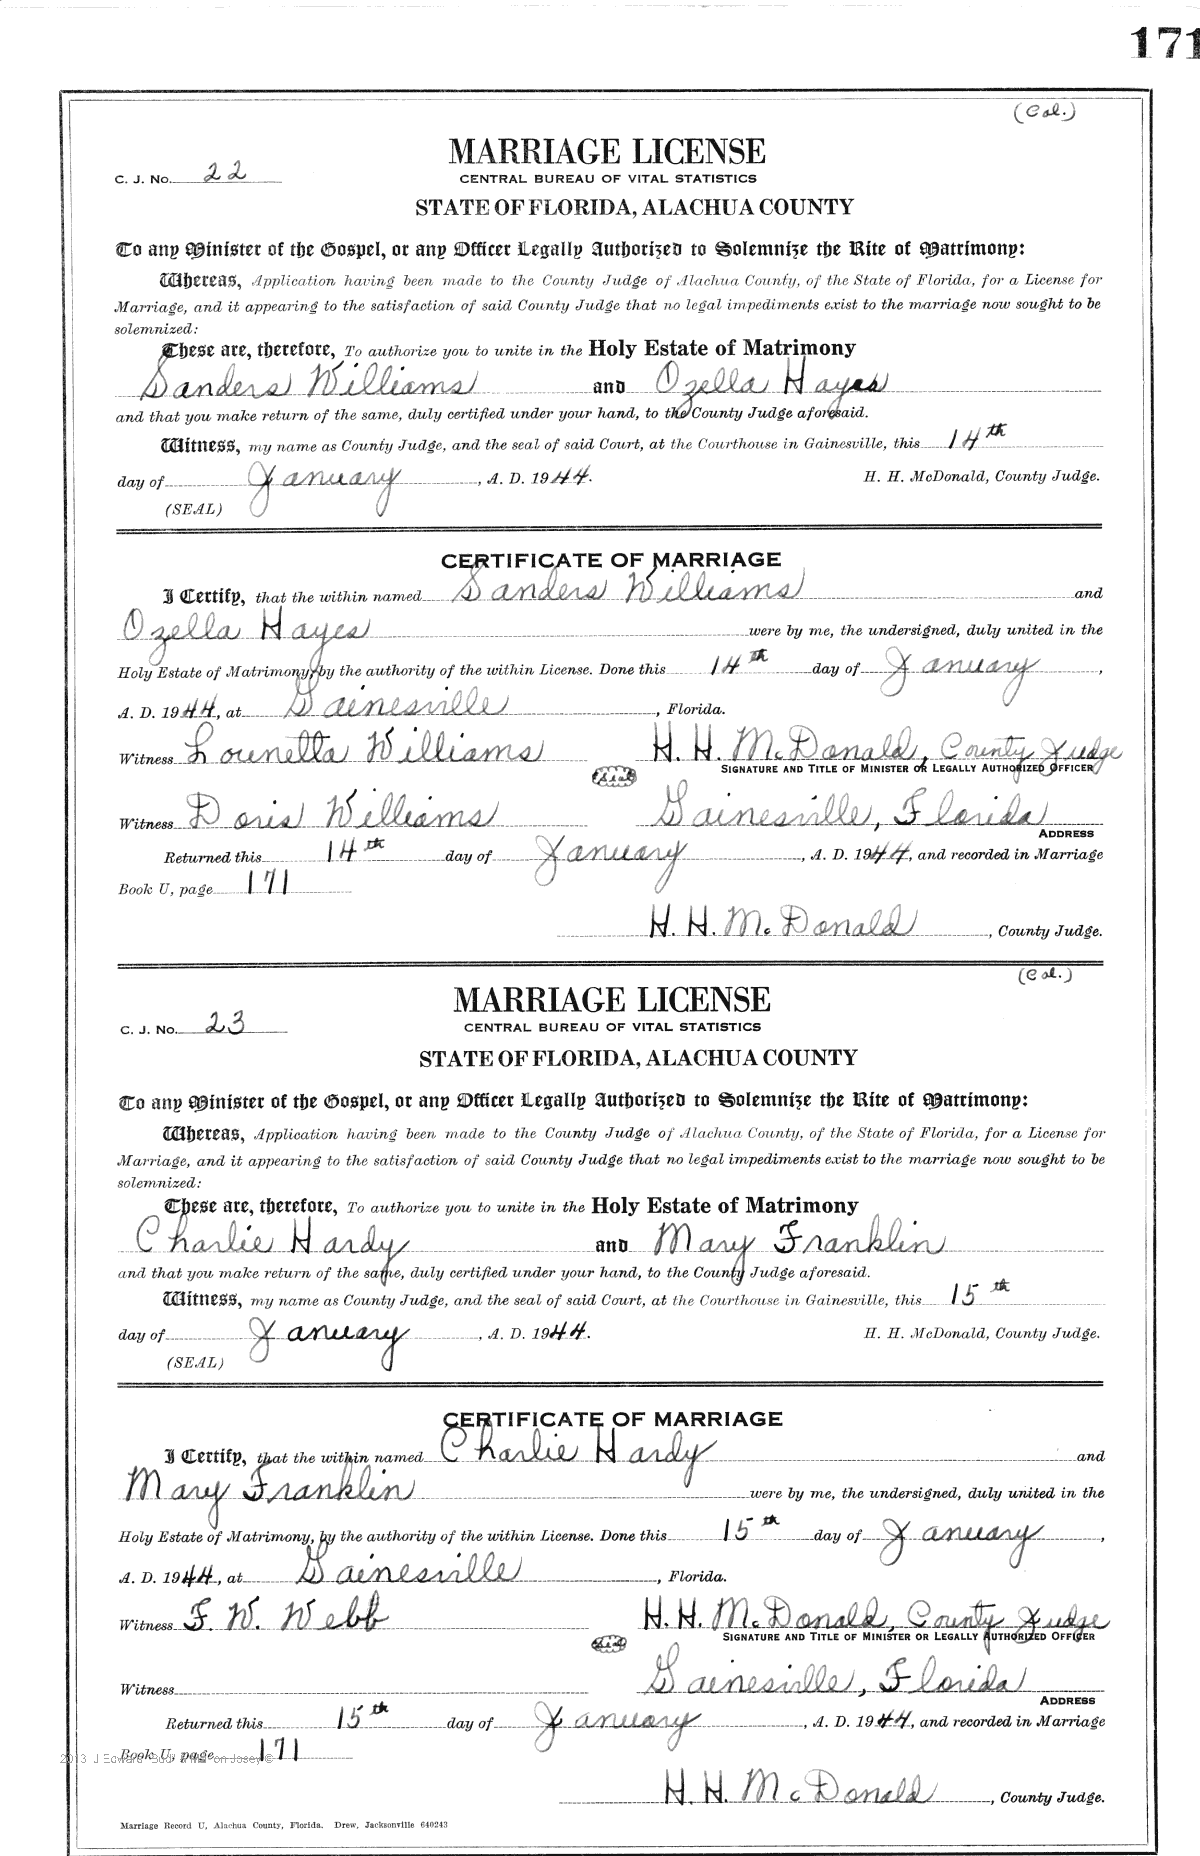 171
(Col.)
MARRIAGE LICENSE
C. J. No. 22
CENTRAL BUREAU OF VITAL STATISTICS
STATE OF FLORIDA, ALACHUA COUNTY
To any Minister of the Gospel, or any Officer Legally Authorized to Solemnize the Rite of Matrimony:
Whereas, Application having been made to the County Judge of Alachua County, of the State of Florida, for a License for
Marriage, and it appearing to the satisfaction of said County Judge that no legal impediments exist to the marriage now sought to be
solemnized:
These are, therefore, To authorize you to unite in the Holy Estate of Matrimony
Sanders Williams and Ozella Hayes
and that you make return of the same, duly certified under your hand, to the County Judge aforesaid.
Witness, my name as County Judge, and the seal of said Court, at the Courthouse in Gainesville, this 14th
day of January, A. D. 1944. H. H. McDonald, County Judge.
(SEAL)
CERTIFICATE OF MARRIAGE
I Certify, that the within named Sanders Williams and
Ozella Hayes were by me, the undersigned, duly united in the
Holy Estate of Matrimony, by the authority of the within License. Done this 14th day of January,
A. D. 1944, at Gainesville, Florida.
Witness Lounetta Williams H. H. McDonald, County Judge
Seal SIGNATURE AND TITLE OF MINISTER OR LEGALLY AUTHORIZED OFFICER
Witness Doris Williams Gainesville, Florida
ADDRESS
Returned this 14th day of January, A. D. 1944, and recorded in Marriage
Book U, page 171
H. H. McDonald, County Judge.
(Col.)
MARRIAGE LICENSE
C. J. No. 23
CENTRAL BUREAU OF VITAL STATISTICS
STATE OF FLORIDA, ALACHUA COUNTY
To any Minister of the Gospel, or any Officer Legally Authorized to Solemnize the Rite of Matrimony:
Whereas, Application having been made to the County Judge of Alachua County, of the State of Florida, for a License for
Marriage, and it appearing to the satisfaction of said County Judge that no legal impediments exist to the marriage now sought to be
solemnized:
These are, therefore, To authorize you to unite in the Holy Estate of Matrimony
Charlie Hardy and Mary Franklin
and that you make return of the same, duly certified under your hand, to the County Judge aforesaid.
Witness, my name as County Judge, and the seal of said Court, at the Courthouse in Gainesville, this 15th
day of January, A. D. 1944. H. H. McDonald, County Judge.
(SEAL)
CERTIFICATE OF MARRIAGE
I Certify, that the within named Charlie Hardy and
Mary Franklin were by me, the undersigned, duly united in the
Holy Estate of Matrimony, by the authority of the within License. Done this 15th day of January,
A. D. 1944, at Gainesville, Florida.
Witness F. W. Webb H. H. McDonald, County Judge
Seal SIGNATURE AND TITLE OF MINISTER OR LEGALLY AUTHORIZED OFFICER
Witness Gainesville, Florida
ADDRESS
Returned this 15th day of January, A. D. 1944, and recorded in Marriage
Book U, page 171
2013 J Edward Josey ©
H. H. McDonald, County Judge.
Marriage Record U, Alachua County, Florida. Drew, Jacksonville 640243